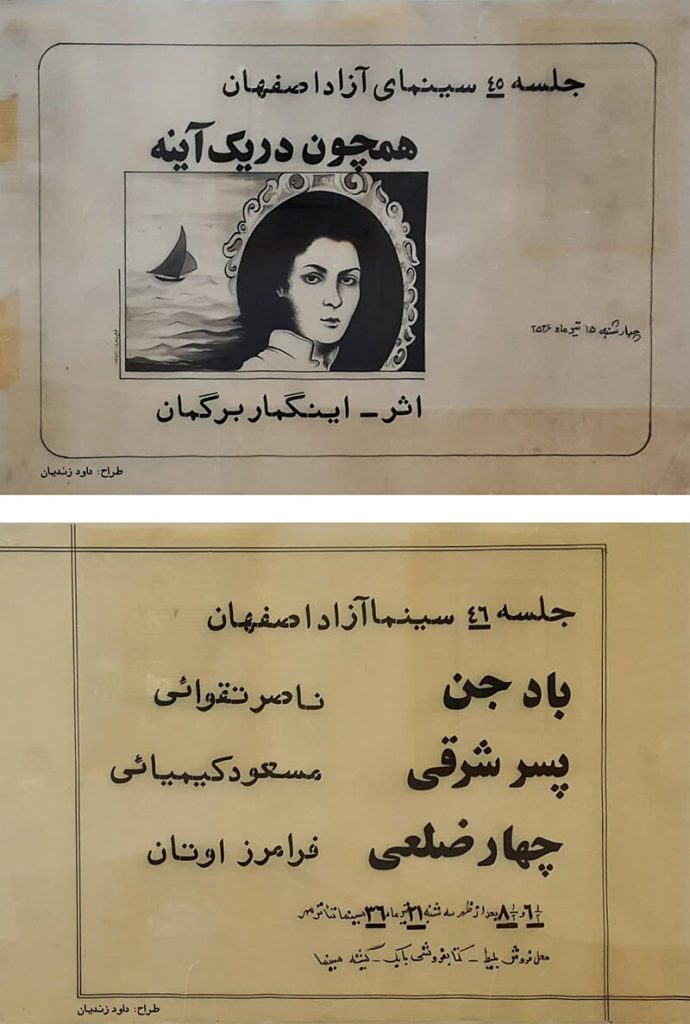 جلسه ٤٥ سینمای آزاد اصفهان
همچون در یک آینه
چهارشنبه ۱۵ تیر ماه ۲۵۳۶
اثر ـ اینگمار برگمان
طراح: داود زندیان
جلسه ٤٦ سینما آزاد اصفهان
باد جن ناصر تقوائی
پسر شرقی مسعود کیمیائی
چهار ضلعی فرامرز اوتان
٦½ و ٨½ بعد از ظهر سه شنبه ۲۱ تیر ماه ۳۶ سینما تئاتر مهر
محل فروش بلیط ـ کتابفروشی بابک ـ گیشه سینما
طراح: داود زندیان